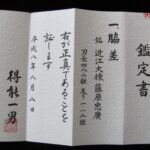 鑑定書
一、脇差
銘 近江大掾藤原忠廣
右が正真であることを
証します
平成八年八月八日
得能一男